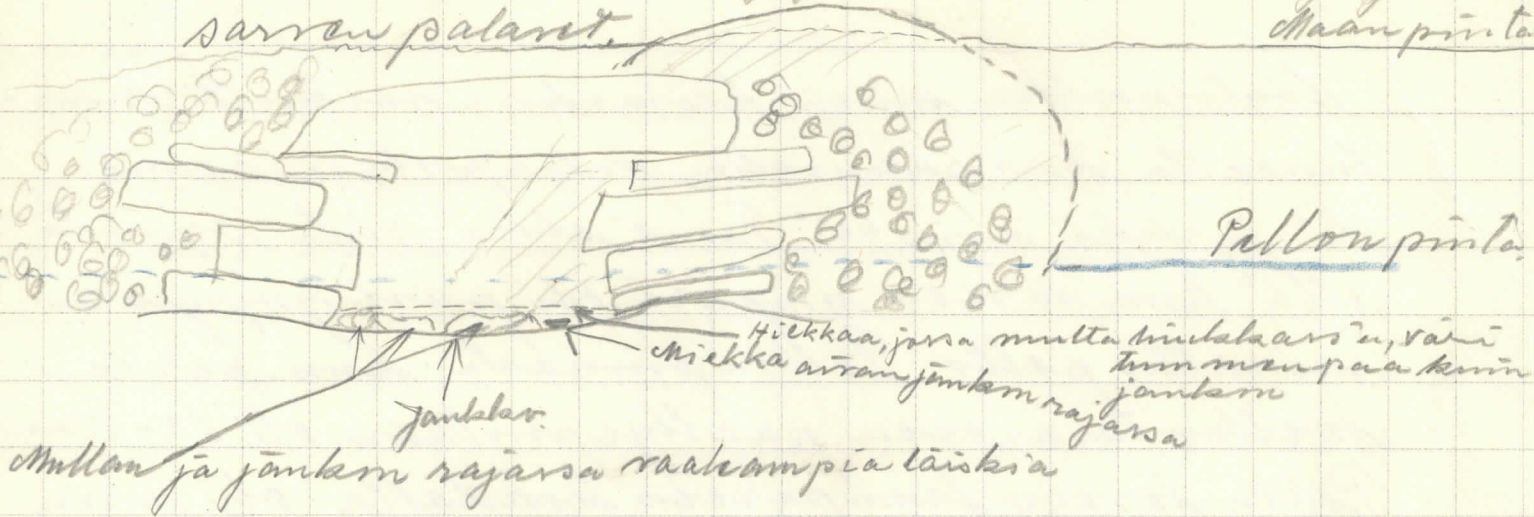 sarven palaset.
Maan pinta
Pellon pinta.
Hiekkaa, jossa multa hiukkasia, väri
tummempaa kuin
jankon
Miekka aivan jankon rajassa
jankko.
Mullan ja jankon rajassa vaaleampia läiskiä